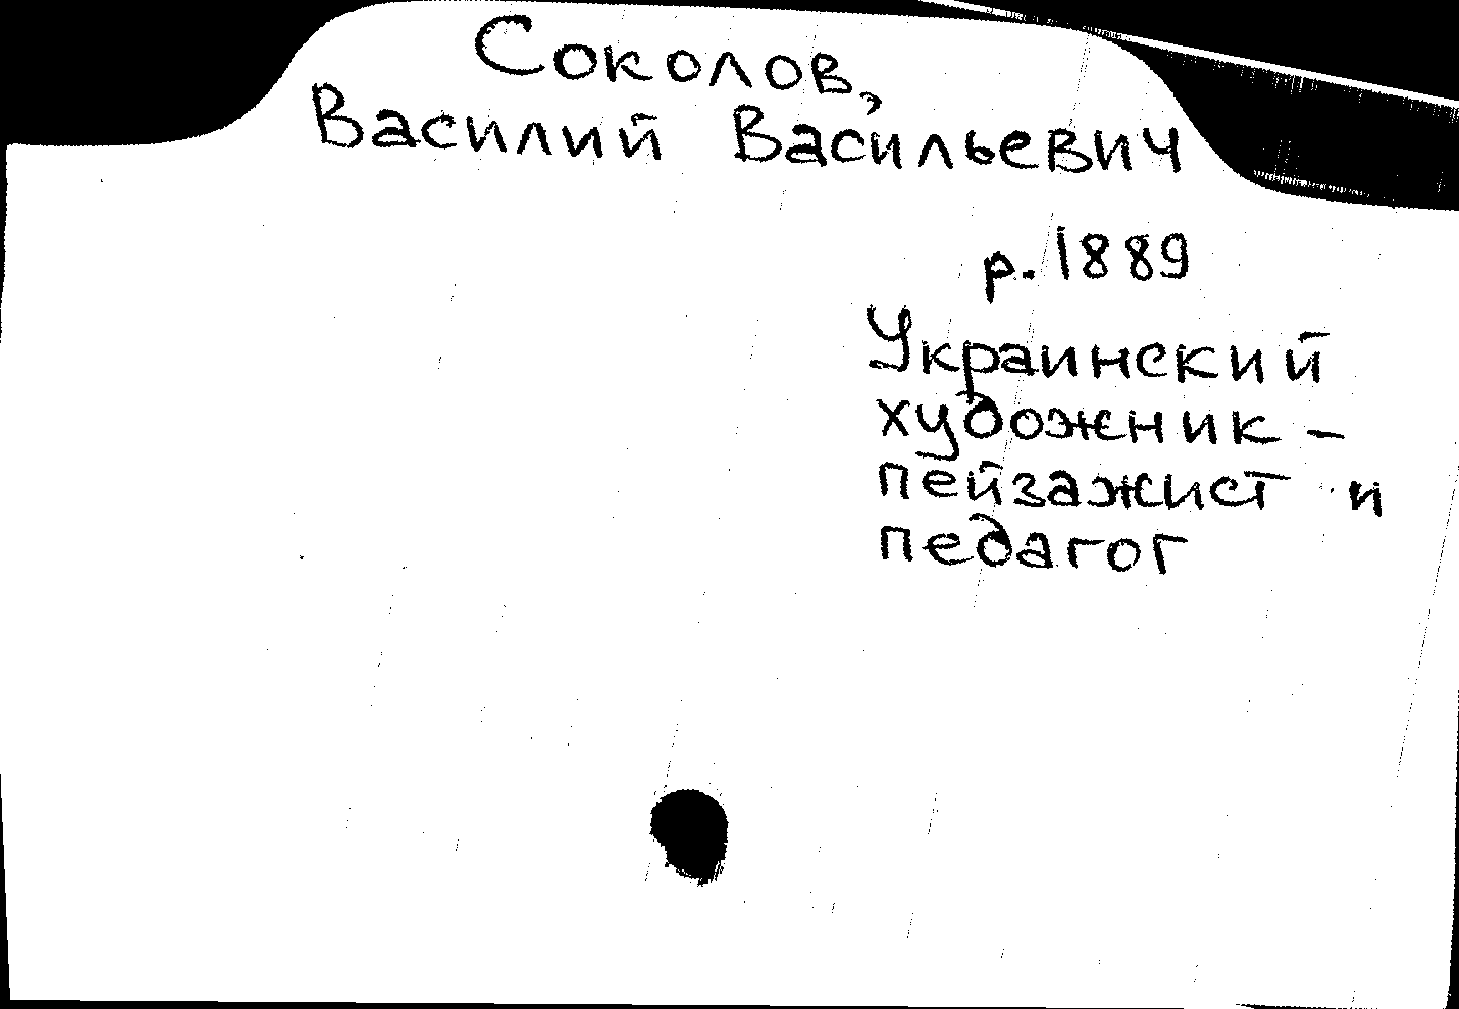 Соколов,
Василий Васильевич
р. 1889
Украинский
художник -
пейзажист и
педагог